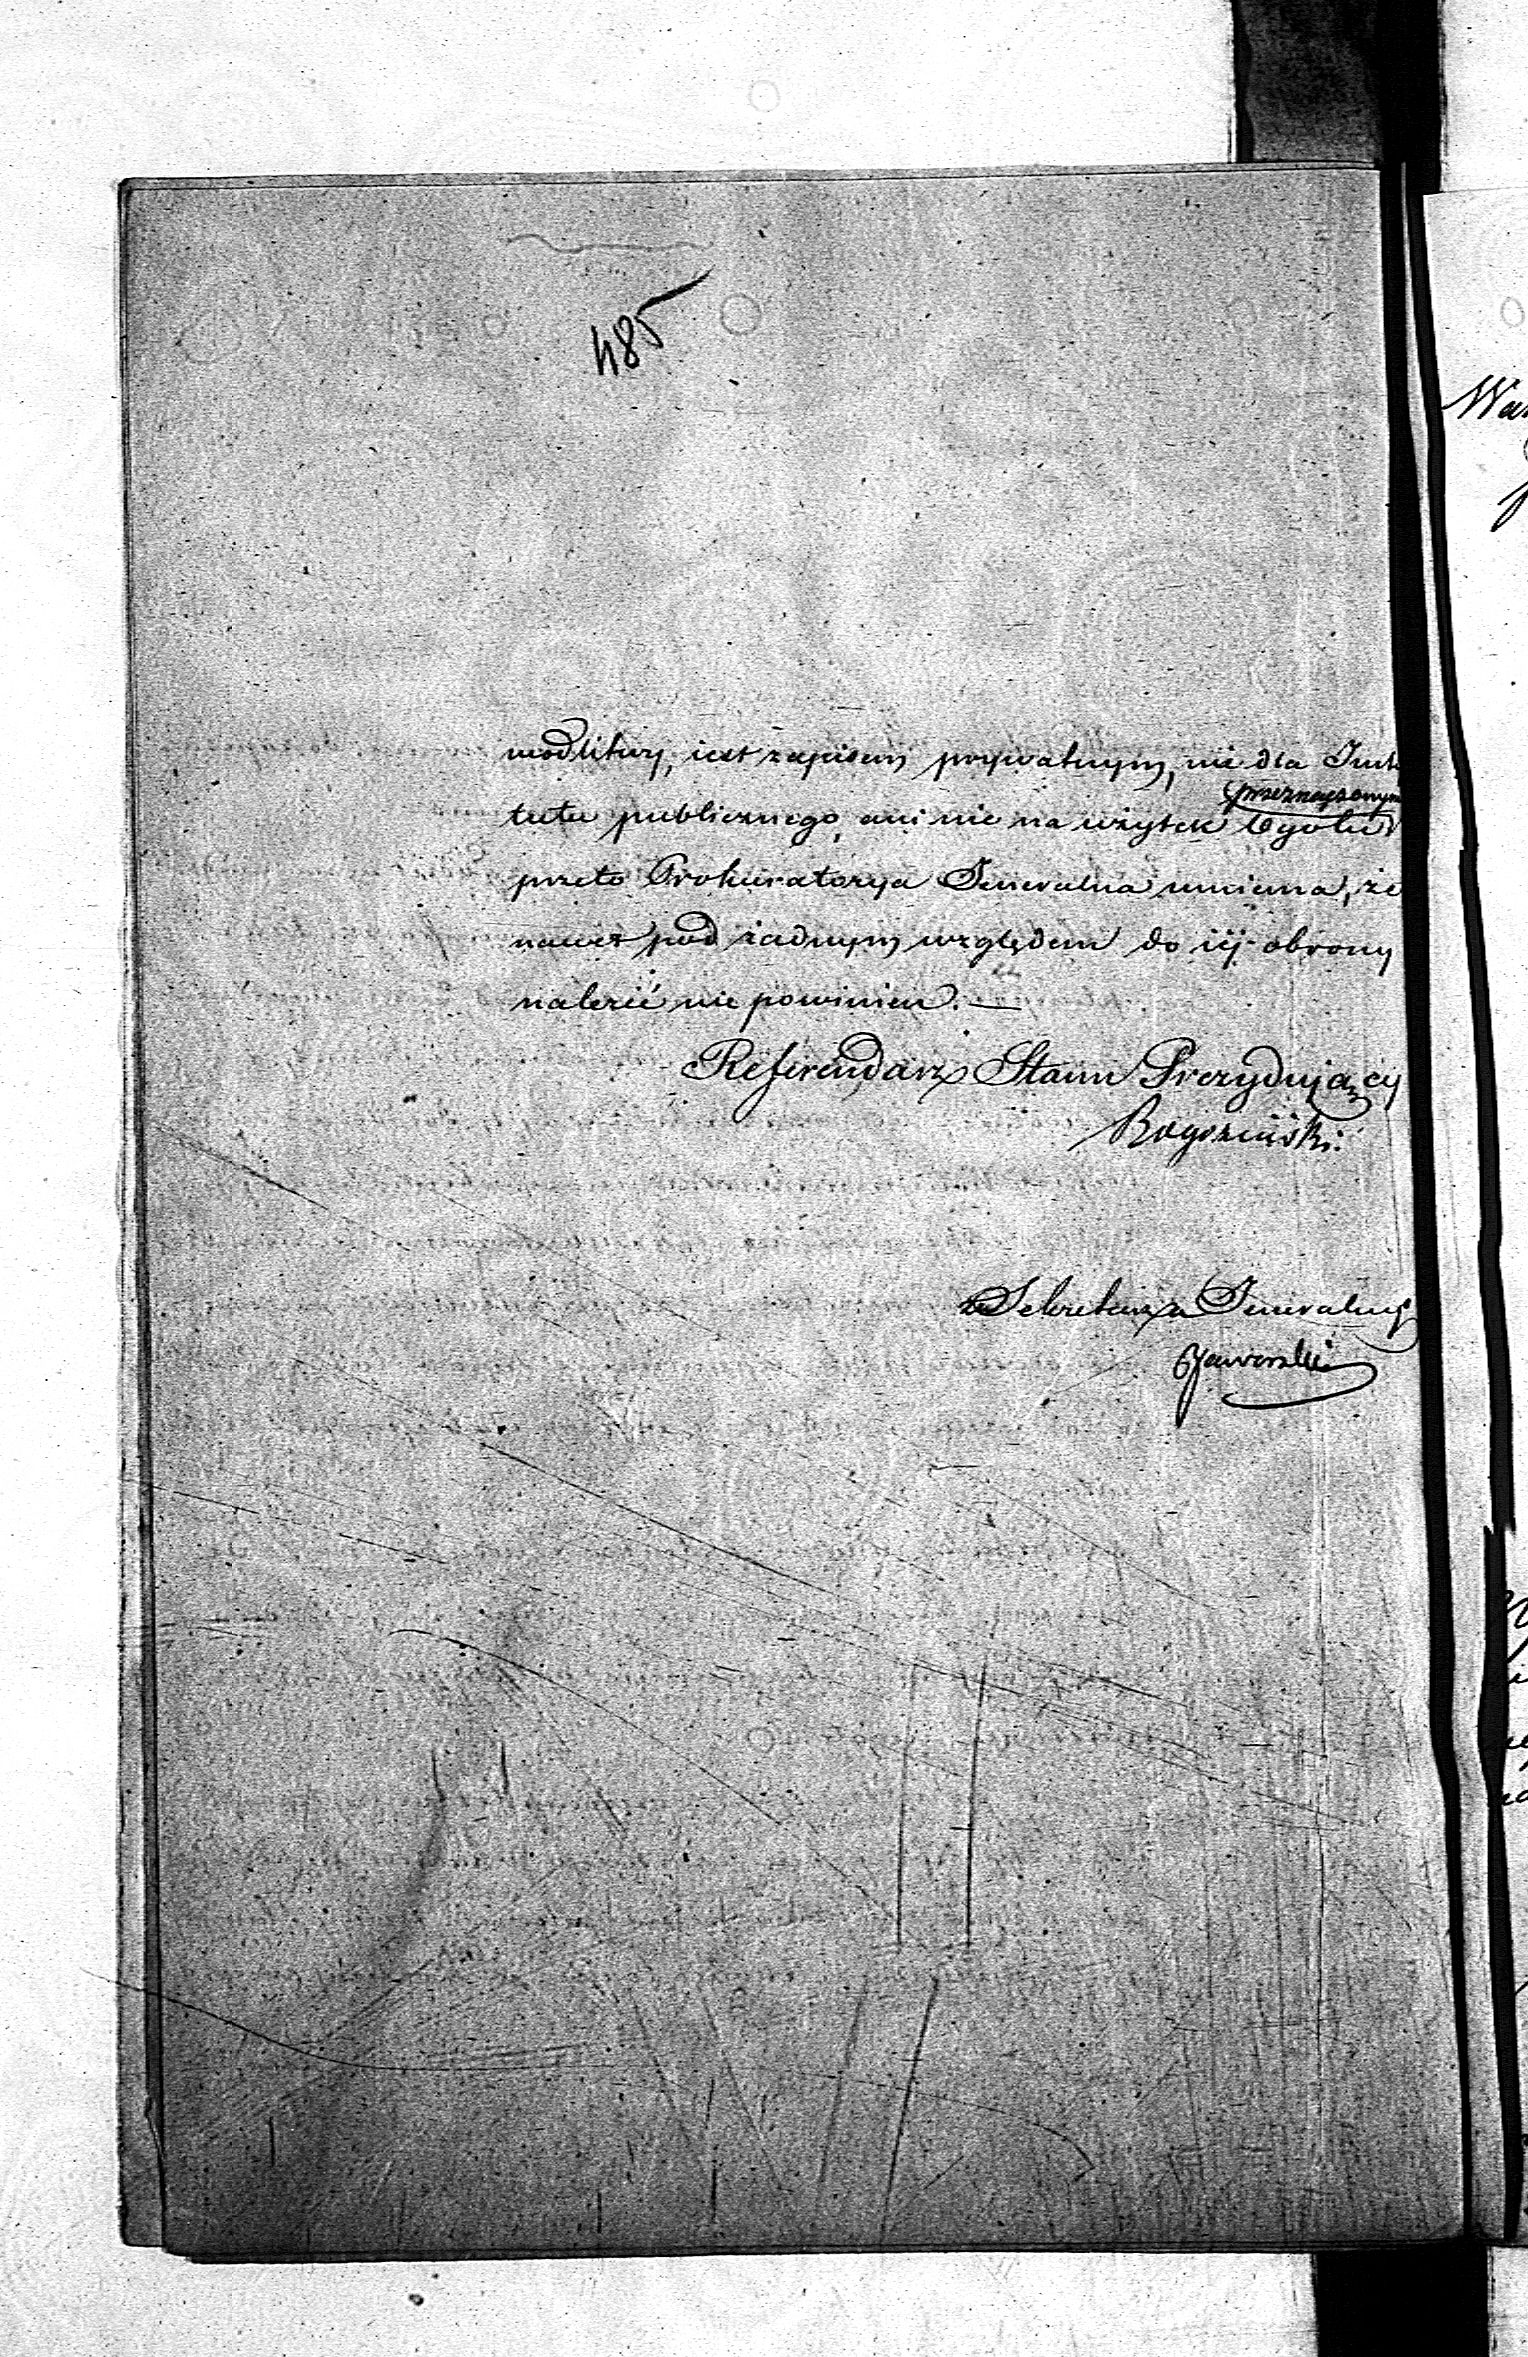 485
modlitwy, iest zapisem prywatnym, nie dla Insty
przeznaczonym
tutu publicznego, ani nie na użytek Ogółu
przeto Prokuratorya Jeneralna mniema, że
nawet pod żadnym względem do iéj obrony
należeć nie powinien. —
Referendarz Stanu Prezydujący
Rogoziński
za Sekretarza Jeneralnego
Jaworski